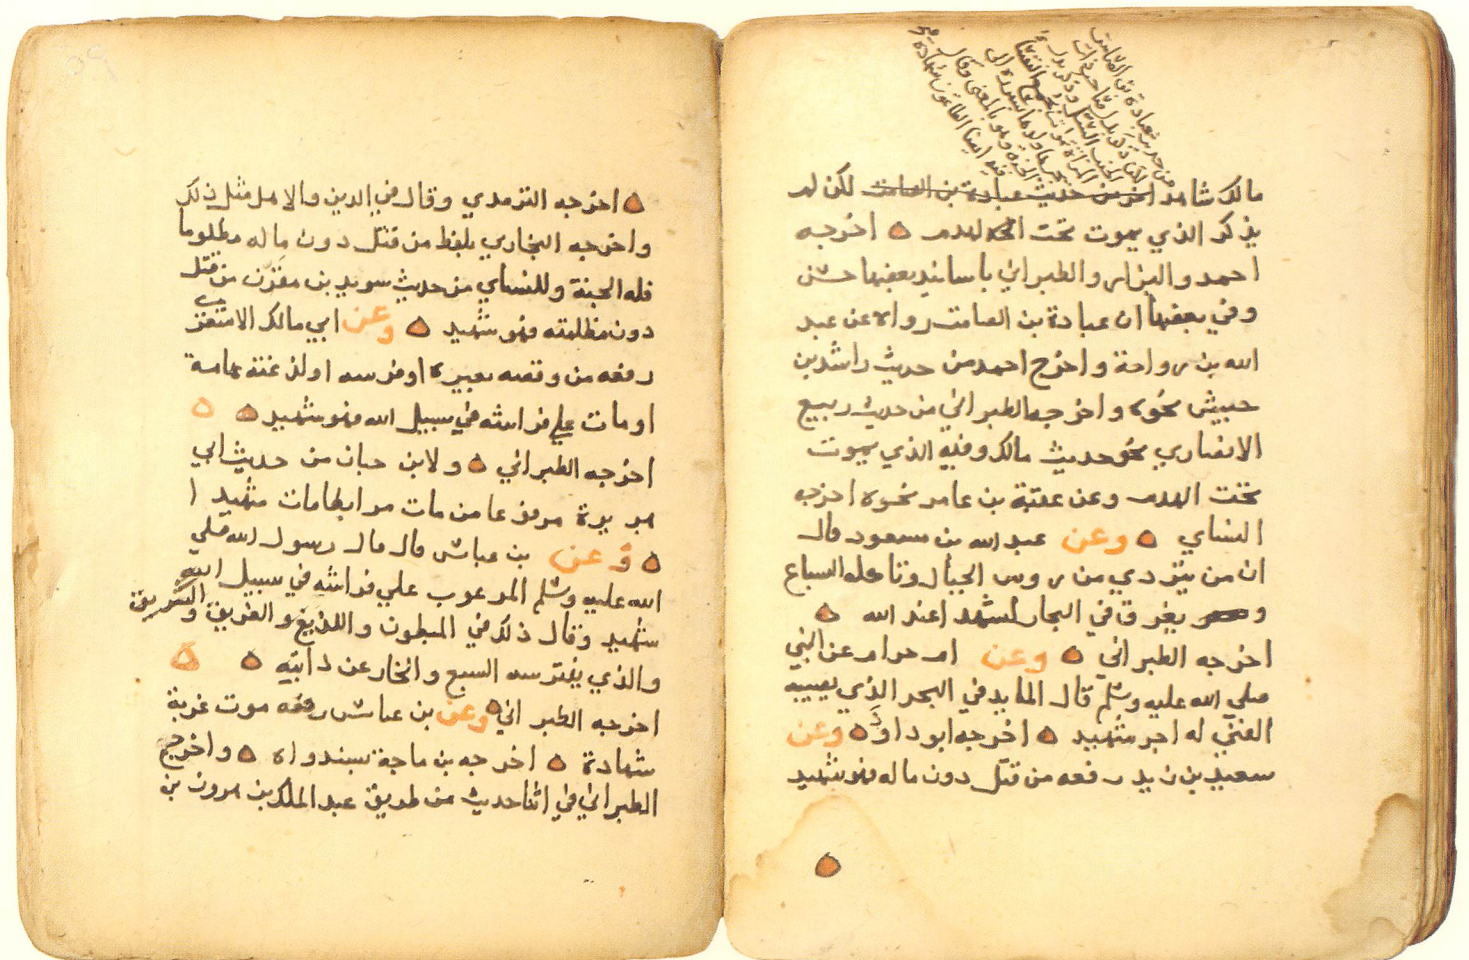 مالك شاهد اخر من حديث عبادة بن الصامت لكن لم
يذكر الذي يموت تحت الهدم اخرجه
احمد والبزار والطبراني باسانيد بعضها حسن
وفي بعضها ان عبادة بن الصامت رواه عن عبد
الله بن رواحة واخرج احمد من حديث راشد بن
حبيش نحوه واخرجه الطبراني من حديث ربيع
الانصاري نحو حديث مالك وفيه الذي يموت
تحت الهدم وعن عقبة بن عامر نحوه اخرجه
النساي وعن عبد الله بن مسعود قال
ان من يتردي من روس الجبال وتاكله السباع
و يغرق في البحار لشهدا عند الله
اخرجه الطبراني وعن ام حرام عن النبي
صلي الله عليه وسلم قال المايد في البحر الذي يصيبه
القي له اجر شهيد اخرجه ابو داود وعن
سعيد بن زيد رفعه من قتل دون ماله فهو شهيد
اخرجه الترمدي وقال في الدين والاهل مثل ذلك
واخرجه البخاري بلفظ من قتل دون ماله مظلوما
فله الجنة وللنساي من حديث سويد بن مقرن من قتل
دون مظلمته فهو شهيد وعن ابي مالك الاشعري
رفعه من وقصه بعيره او فرسه او لدغته هامة
او مات علي فراشه في سبيل الله فهو شهيد
اخرجه الطبراني ولابن حبان من حديث ابي
هريرة مرفوعا من مات مرابطا مات شهيدا
وعن بن عباس قال قال رسول الله صلي
الله عليه وسلم المرعوب علي فراشه في سبيل الله
شهيد وقال ذلك في المبطون واللديغ والغريق والشريق
والذي يفترسه السبع والخار عن دابته
اخرجه الطبراني وعن بن عباس رفعه موت غربة
شهادة اخرجه بن ماجة بسند واه واخرج
الطبراني في اثنا حديث من طريق عبد الملك بن هرون بن